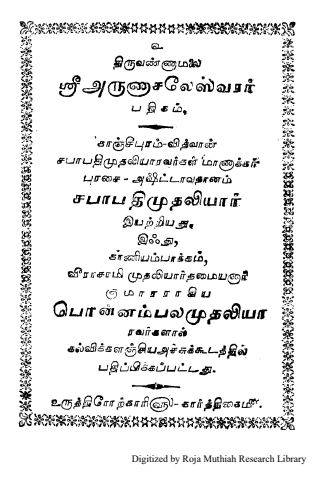 உ
திருவண்ணாமலை
ஸ்ரீ அருணாசலேஸ்வரர்
பதிகம்,
காஞ்சீபுரம்-வித்வான்
சபாபதிமுதலியாரவர்கள் மாணாக்கர்
புரசை - அஷ்டாவதானம்
சபாபதிமுதலியார்
இயற்றியது,
இஃது,
கானியம்பாக்கம்,
வீராசாமி முதலியார்தமையனார்
குமாரராகிய
பொன்னம்பலமுதலியா
ரவர்களால்
கல்விக்களஞ்சியஅச்சுக்கூடத்தில்
பதிப்பிக்கப்பட்டது.
உருத்திரோற்காரிவரு-கார்த்திகைமீ.
Digitized by Roja Muthiah Research Library